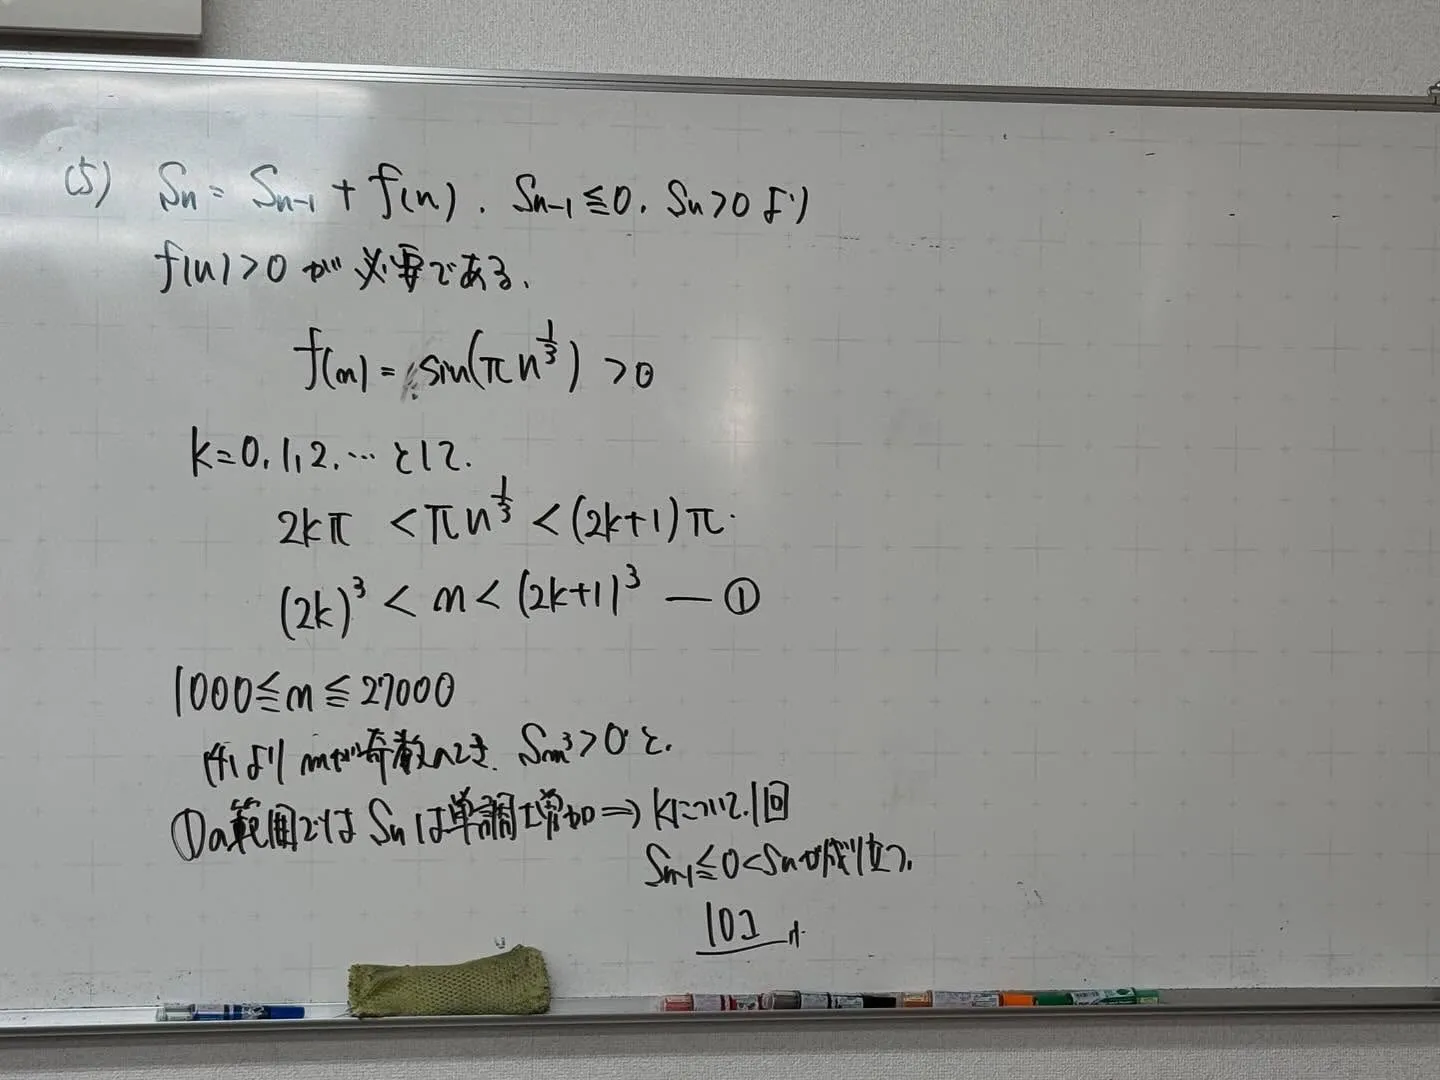 (5) Sn = Sn-1 + f(n). Sn-1 ≦ 0. Sn > 0 より
f(n) > 0 が必要である.
f(n) = sin(πn^{1/3}) > 0
k=0,1,2,… として.
2kπ < πn^{1/3} < (2k+1)π.
(2k)^3 < n < (2k+1)^3 — ①
1000 ≦ n ≦ 27000
(4)より mが奇数のとき. Sm^3 > 0 と.
①の範囲では Snは単調増加 ⇒ kについて.1回
Sn-1 ≦ 0 < Snが成り立つ.
10コ